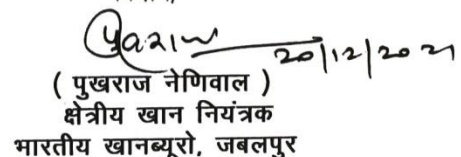 20/12/2021
( पुखराज नेणिवाल )
क्षेत्रीय खान नियंत्रक
भारतीय खानब्यूरो, जबलपुर